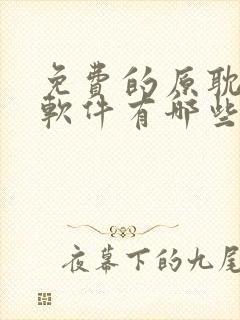 免費的原耽
軟件有哪些
夜幕下的九尾